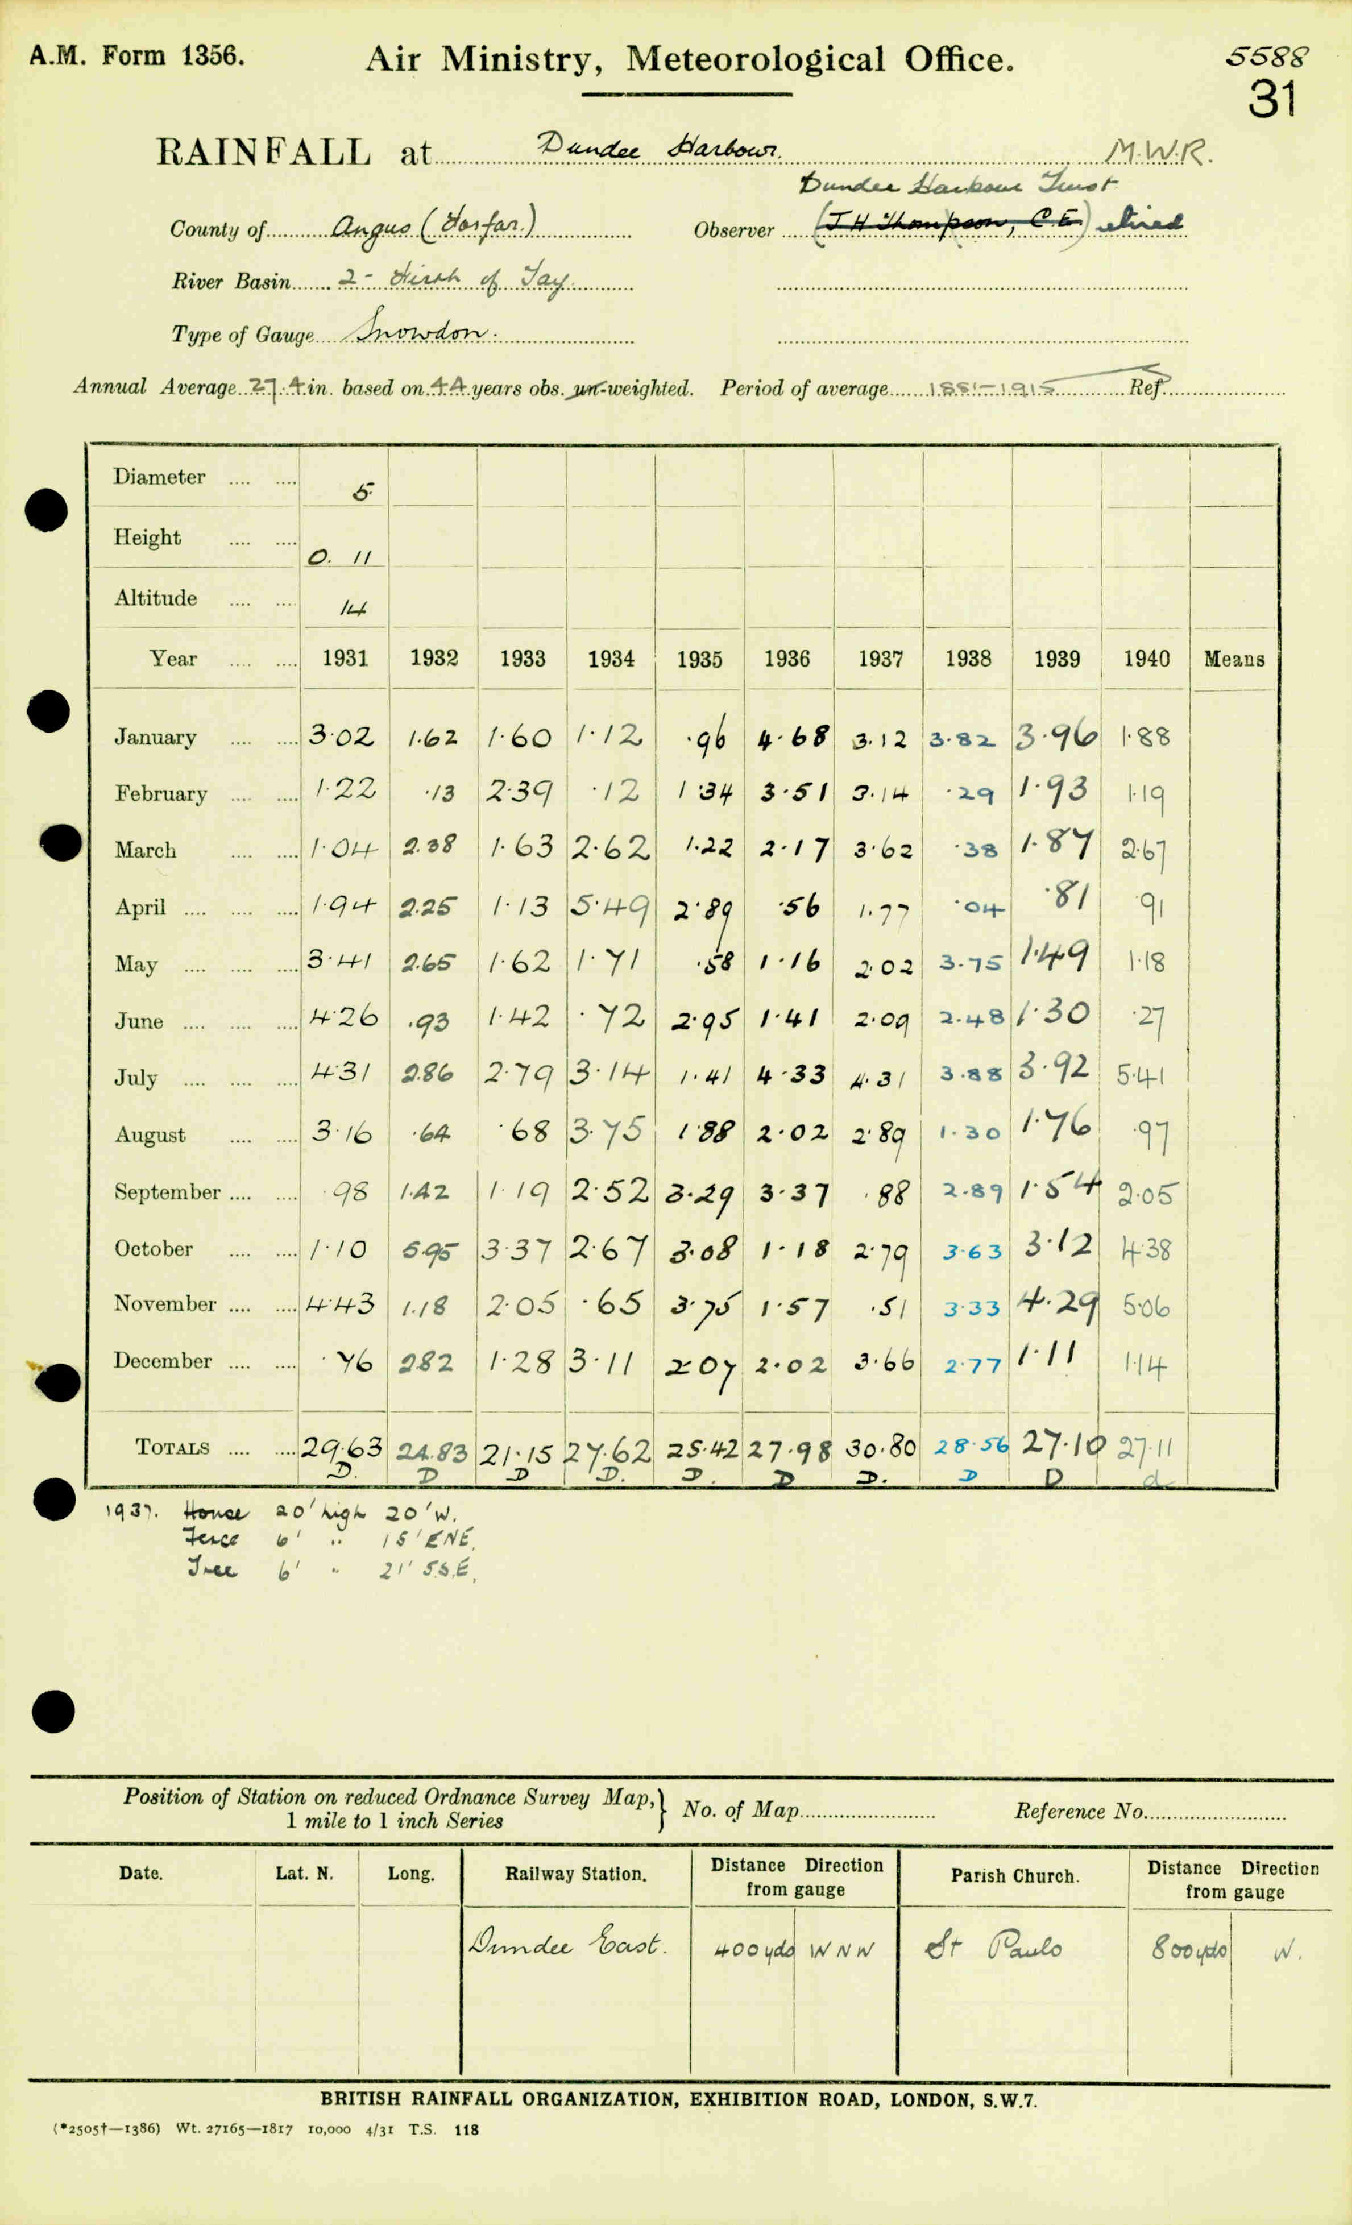 A.M. Form 1356. Air Ministry, Meteorological Office. 5588
31
RAINFALL at Dundee Harbour. M.W.R.
Dundee Harbour Trust
County of Angus (Forfar.) Observer (J H Thompson, C.E.) retired
River Basin 2 - Firth of Tay
Type of Gauge Snowdon.
Annual Average 27.4 in. based on 44 years obs. un-weighted. Period of average 1881-1915 Ref.
Diameter 5
Height 0. 11
Altitude 14
Year 1931 1932 1933 1934 1935 1936 1937 1938 1939 1940 Means
January 3.02 1.62 1.60 1.12 .96 4.68 3.12 3.82 3.96 1.88
February 1.22 .13 2.39 .12 1.34 3.51 3.14 .29 1.93 1.19
March 1.04 2.38 1.63 2.62 1.22 2.17 3.62 .38 1.87 2.67
April 1.94 2.25 1.13 5.49 2.89 .56 1.77 .04 .81 .91
May 3.41 2.65 1.62 1.71 .58 1.16 2.02 3.75 1.49 1.18
June 4.26 .93 1.42 .72 2.95 1.41 2.09 2.48 1.30 .27
July 4.31 2.86 2.79 3.14 1.41 4.33 4.31 3.88 3.92 5.41
August 3.16 .64 .68 3.75 1.88 2.02 2.89 1.30 1.76 .97
September .98 1.42 1.19 2.52 3.29 3.37 .88 2.89 1.54 2.05
October 1.10 5.95 3.37 2.67 3.08 1.18 2.79 3.63 3.12 4.38
November 4.43 1.18 2.05 .65 3.75 1.57 .51 3.33 4.29 5.06
December .76 2.82 1.28 3.11 2.07 2.02 3.66 2.77 1.11 1.14
TOTALS 29.63 24.83 21.15 27.62 25.42 27.98 30.80 28.56 27.10 27.11
D. D D D. D. D D. D D d
1937. House 20' high 20' W.
Fence 6' " 15' ENE.
Tree 6' " 21' S.S.E.
Position of Station on reduced Ordnance Survey Map, 1 mile to 1 inch Series } No. of Map Reference No.
Date. Lat. N. Long. Railway Station. Distance Direction from gauge Parish Church. Distance Direction from gauge
Dundee East. 400 yds WNW St Pauls 800 yds W.
BRITISH RAINFALL ORGANIZATION, EXHIBITION ROAD, LONDON, S.W.7.
(*2505†—1386) Wt. 27165—1817 10,000 4/31 T.S. 118